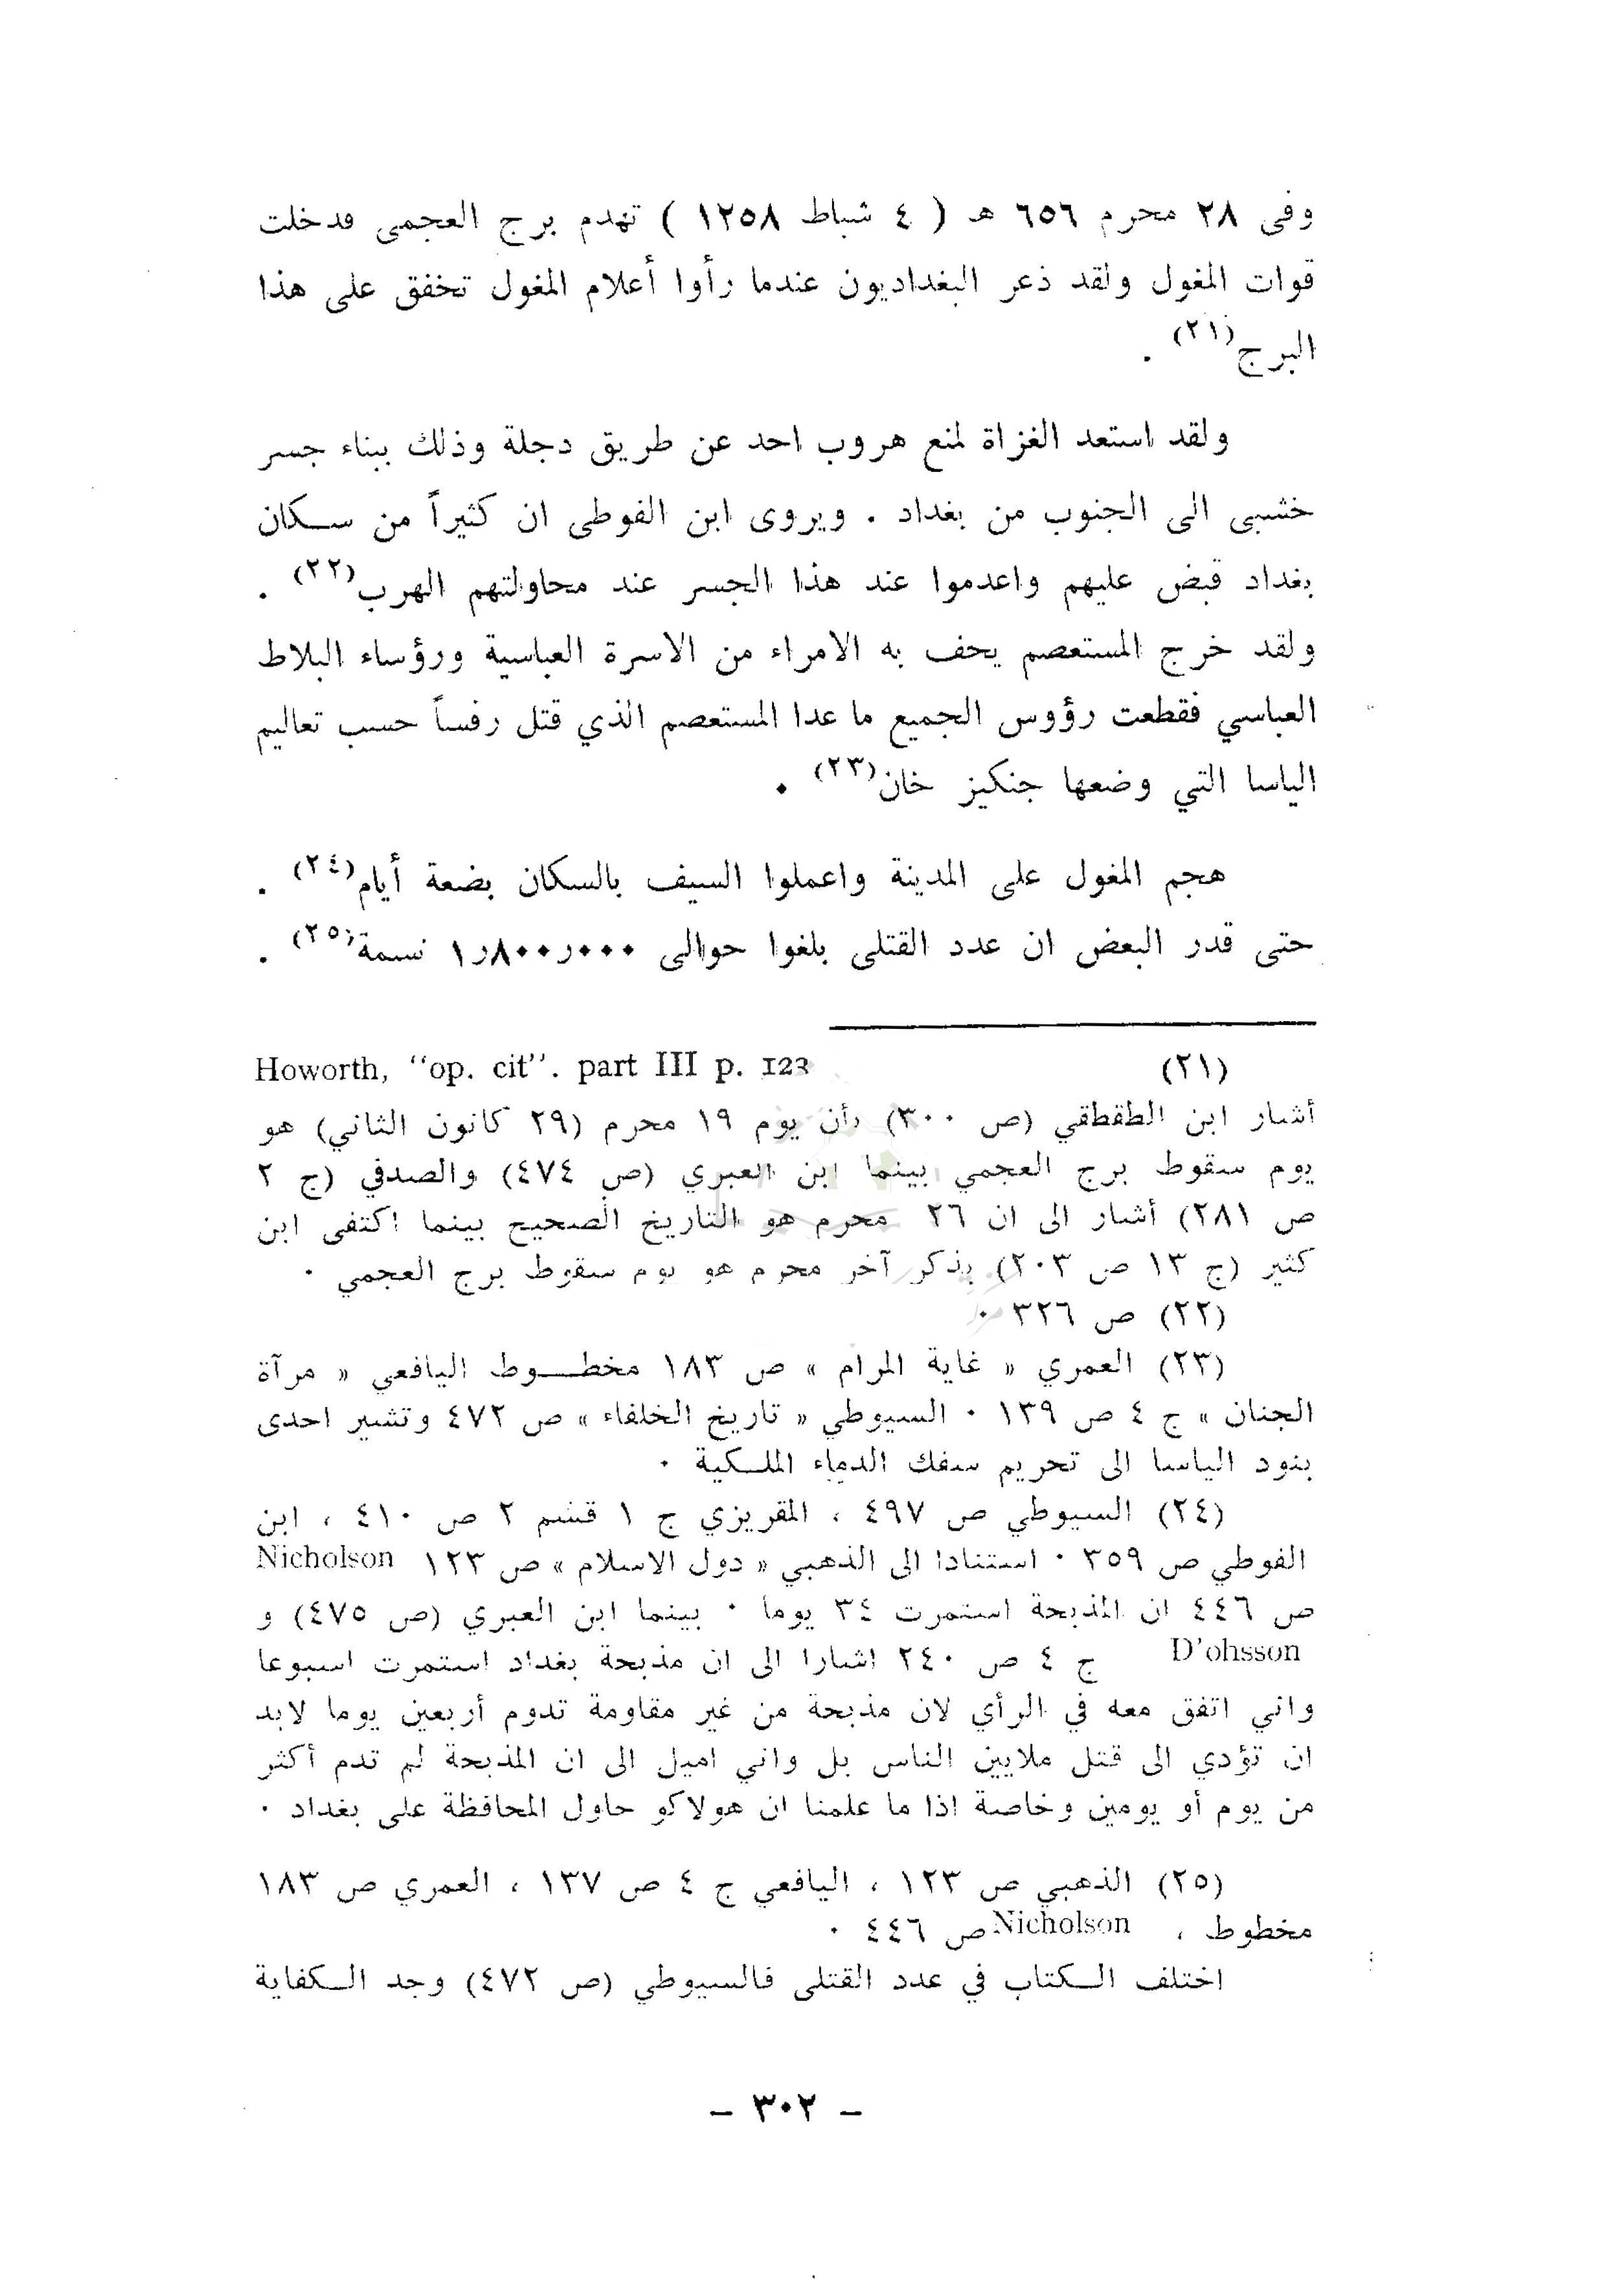 وفى ٢٨ محرم ٦٥٦ هـ ( ٤ شباط ١٢٥٨ ) تهدم برج العجمى فدخلت
قوات المغول ولقد ذعر البغداديون عندما رأوا أعلام المغول تخفق على هذا
البرج(٢١) .
ولقد استعد الغزاة لمنع هروب احد عن طريق دجلة وذلك ببناء جسر
خشبى الى الجنوب من بغداد . ويروى ابن الفوطى ان كثيراً من سكان
بغداد قبض عليهم واعدموا عند هذا الجسر عند محاولتهم الهرب(٢٢) .
ولقد خرج المستعصم يحف به الامراء من الاسرة العباسية ورؤساء البلاط
العباسي فقطعت رؤوس الجميع ما عدا المستعصم الذي قتل رفساً حسب تعاليم
الياسا التي وضعها جنكيز خان(٢٣) .
هجم المغول على المدينة واعملوا السيف بالسكان بضعة أيام(٢٤) .
حتى قدر البعض ان عدد القتلى بلغوا حوالى ١٫٨٠٠٫٠٠٠ نسمة(٢٥) .
(٢١) Howorth, "op. cit". part III p. 123
أشار ابن الطقطقي (ص ٣٠٠) بأن يوم ١٩ محرم (٢٩ كانون الثاني) هو
يوم سقوط برج العجمي بينما ابن العبري (ص ٤٧٤) والصدفي (ج ٢
ص ٢٨١) أشار الى ان ٢٦ محرم هو التاريخ الصحيح بينما اكتفى ابن
كثير (ج ١٣ ص ٢٠٣) بذكر آخر محرم هو يوم سقوط برج العجمي .
(٢٢) ص ٣٢٦ .
(٢٣) العمري « غاية المرام » ص ١٨٣ مخطوط اليافعي « مرآة
الجنان » ج ٤ ص ١٣٩ . السيوطي « تاريخ الخلفاء » ص ٤٧٢ وتشير احدى
بنود الياسا الى تحريم سفك الدماء الملكية .
(٢٤) السيوطي ص ٤٩٧ ، المقريزي ج ١ قسم ٢ ص ٤١٠ ، ابن
الفوطي ص ٣٥٩ . استنادا الى الذهبي « دول الاسلام » ص ١٢٣ Nicholson
ص ٤٤٦ ان المذبحة استمرت ٣٤ يوما . بينما ابن العبري (ص ٤٧٥) و
D'ohsson ج ٤ ص ٢٤٠ اشارا الى ان مذبحة بغداد استمرت اسبوعا
واني اتفق معه في الرأي لان مذبحة من غير مقاومة تدوم أربعين يوما لابد
ان تؤدي الى قتل ملايين الناس بل واني اميل الى ان المذبحة لم تدم أكثر
من يوم أو يومين وخاصة اذا ما علمنا ان هولاكو حاول المحافظة على بغداد .
(٢٥) الذهبي ص ١٢٣ ، اليافعي ج ٤ ص ١٣٧ ، العمري ص ١٨٣
مخطوط ، Nicholson ص ٤٤٦ .
اختلف الكتاب في عدد القتلى فالسيوطي (ص ٤٧٢) وجد الكفاية
– ٣٠٢ –